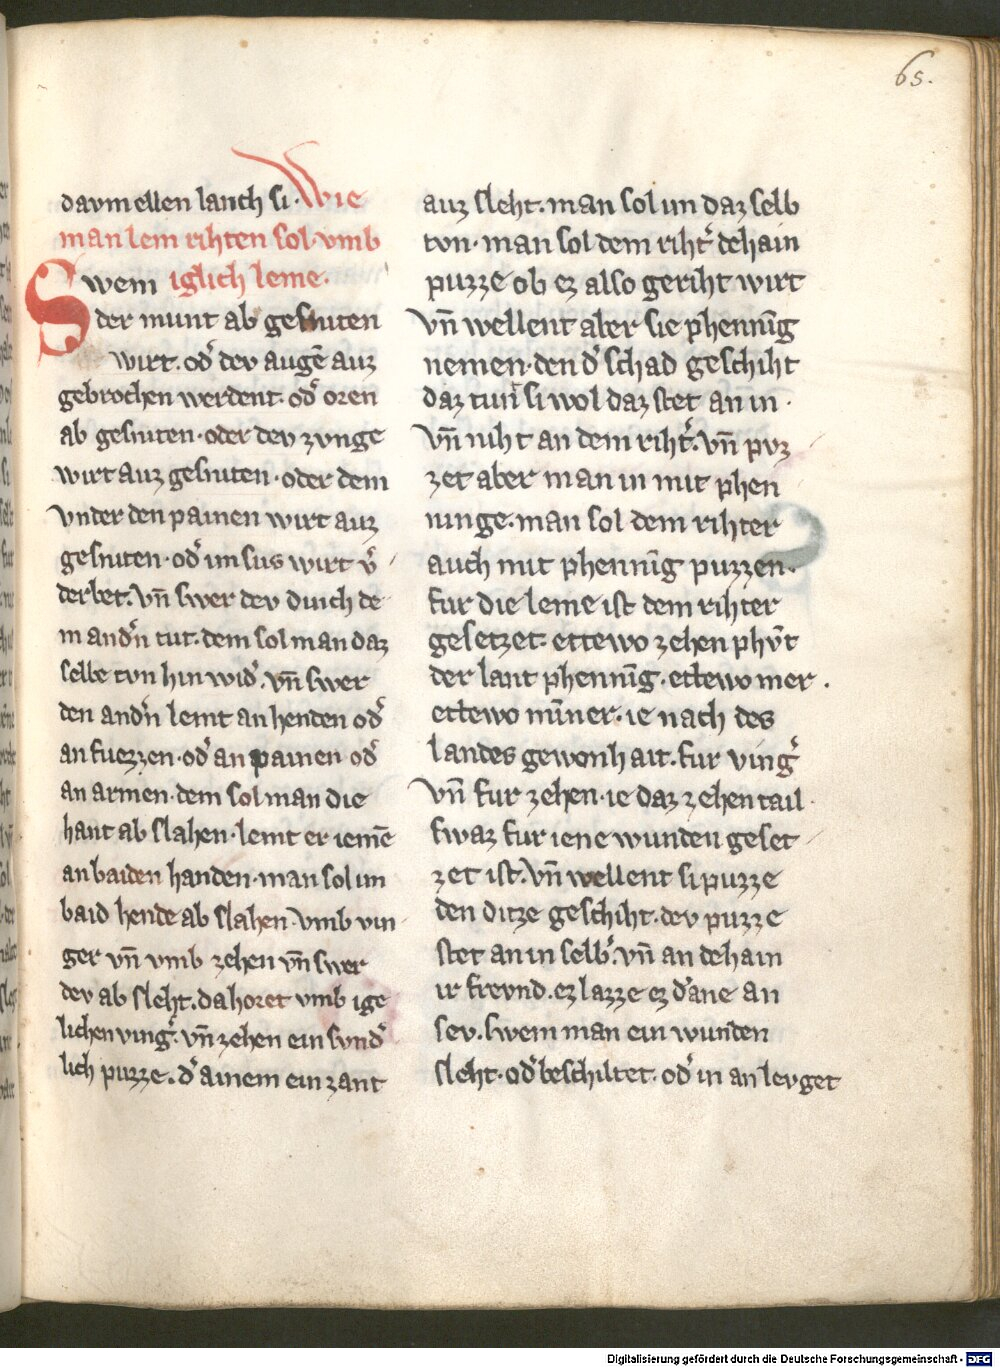 65.
davm ellen lanch si. Wie
man lem rihten sol. vmb
Swem iglich leme.
der munt ab gesniten
wirt. od̾ dev augē auz
gebrochen werdent. od̾ oren
ab gesniten. oder dev zvnge
wirt auz gesniten. oder dem
vnder den painen wirt auz
gesniten. od̾ im sus wirt v̾
derbet. vn̄ swer dev duich de
m and̾n tut. dem sol man daz
selbe tvn hin wid̾. vn̄ swer
den and̾n lemt an henden od̾
an fuezzen. od̾ an painen od̾
an armen. dem sol man die
hant ab slahen. lemt er iemē
an baiden handen. man sol im
baid hende ab slahen. vmb vin
ger vn̄ vmb zehen vn̄ swer
dev ab sleht. da horet vmb ige
lichen ving̾. vn̄ zehen ein svnd̾
lich puzze. d̾ ainem ein zant
auz sleht. man sol im daz selb
tvn. man sol dem riht̾ dehain
puzze ob ez also geriht wirt
vn̄ wellent aber sie phennīg
nemen. den d̾ schad geschiht
daz tun si wol daz stet an in.
vn̄ niht an dem riht̾. vn̄ pvz
zet aber man in mit phen
ninge. man sol dem rihter
auch mit phennīg puzzen.
fur die leme ist dem rihter
gesetzet. ettewo zehen phv̄t
der lant phennīg. ettewo mer.
ettewo mīner. ie nach des
landes gewonhait. fur ving̾
vn̄ fur zehen. ie daz zehen tail.
swaz fur iene wunden geset
zet ist. vn̄ wellent si puzze
den ditze geschiht. dev puzze
stet an in selb̾. vn̄ an dehain
ir frevnd. ez lazze ez d̾ ane an
sev. swem man ein wunden
sleht. od̾ beschiltet. od̾ in an levget
Digitalisierung gefördert durch die Deutsche Forschungsgemeinschaft - DFG